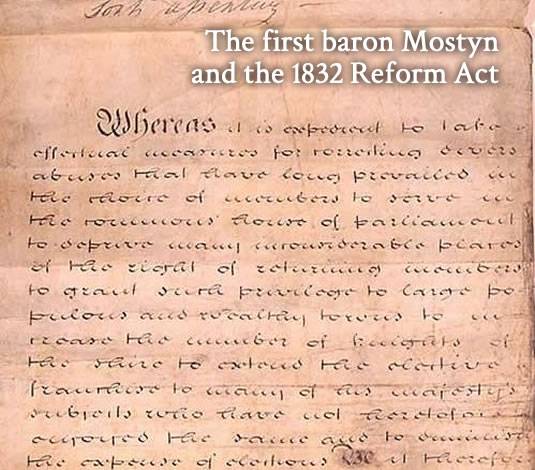 The first baron Mostyn
and the 1832 Reform Act
Whereas it is expedient to take
effectual measures for correcting divers
abuses that have long prevailed in
the choice of members to serve in
the commons house of parliament
to deprive many inconsiderable places
of the right of returning members
to grant such privilege to large po
pulous and wealthy towns to in
crease the number of knights of
the shire to extend the elective
franchise to many of his majestys
subjects who have not heretofore
enjoyed the same and to diminish
the expense of elections Be it therefore